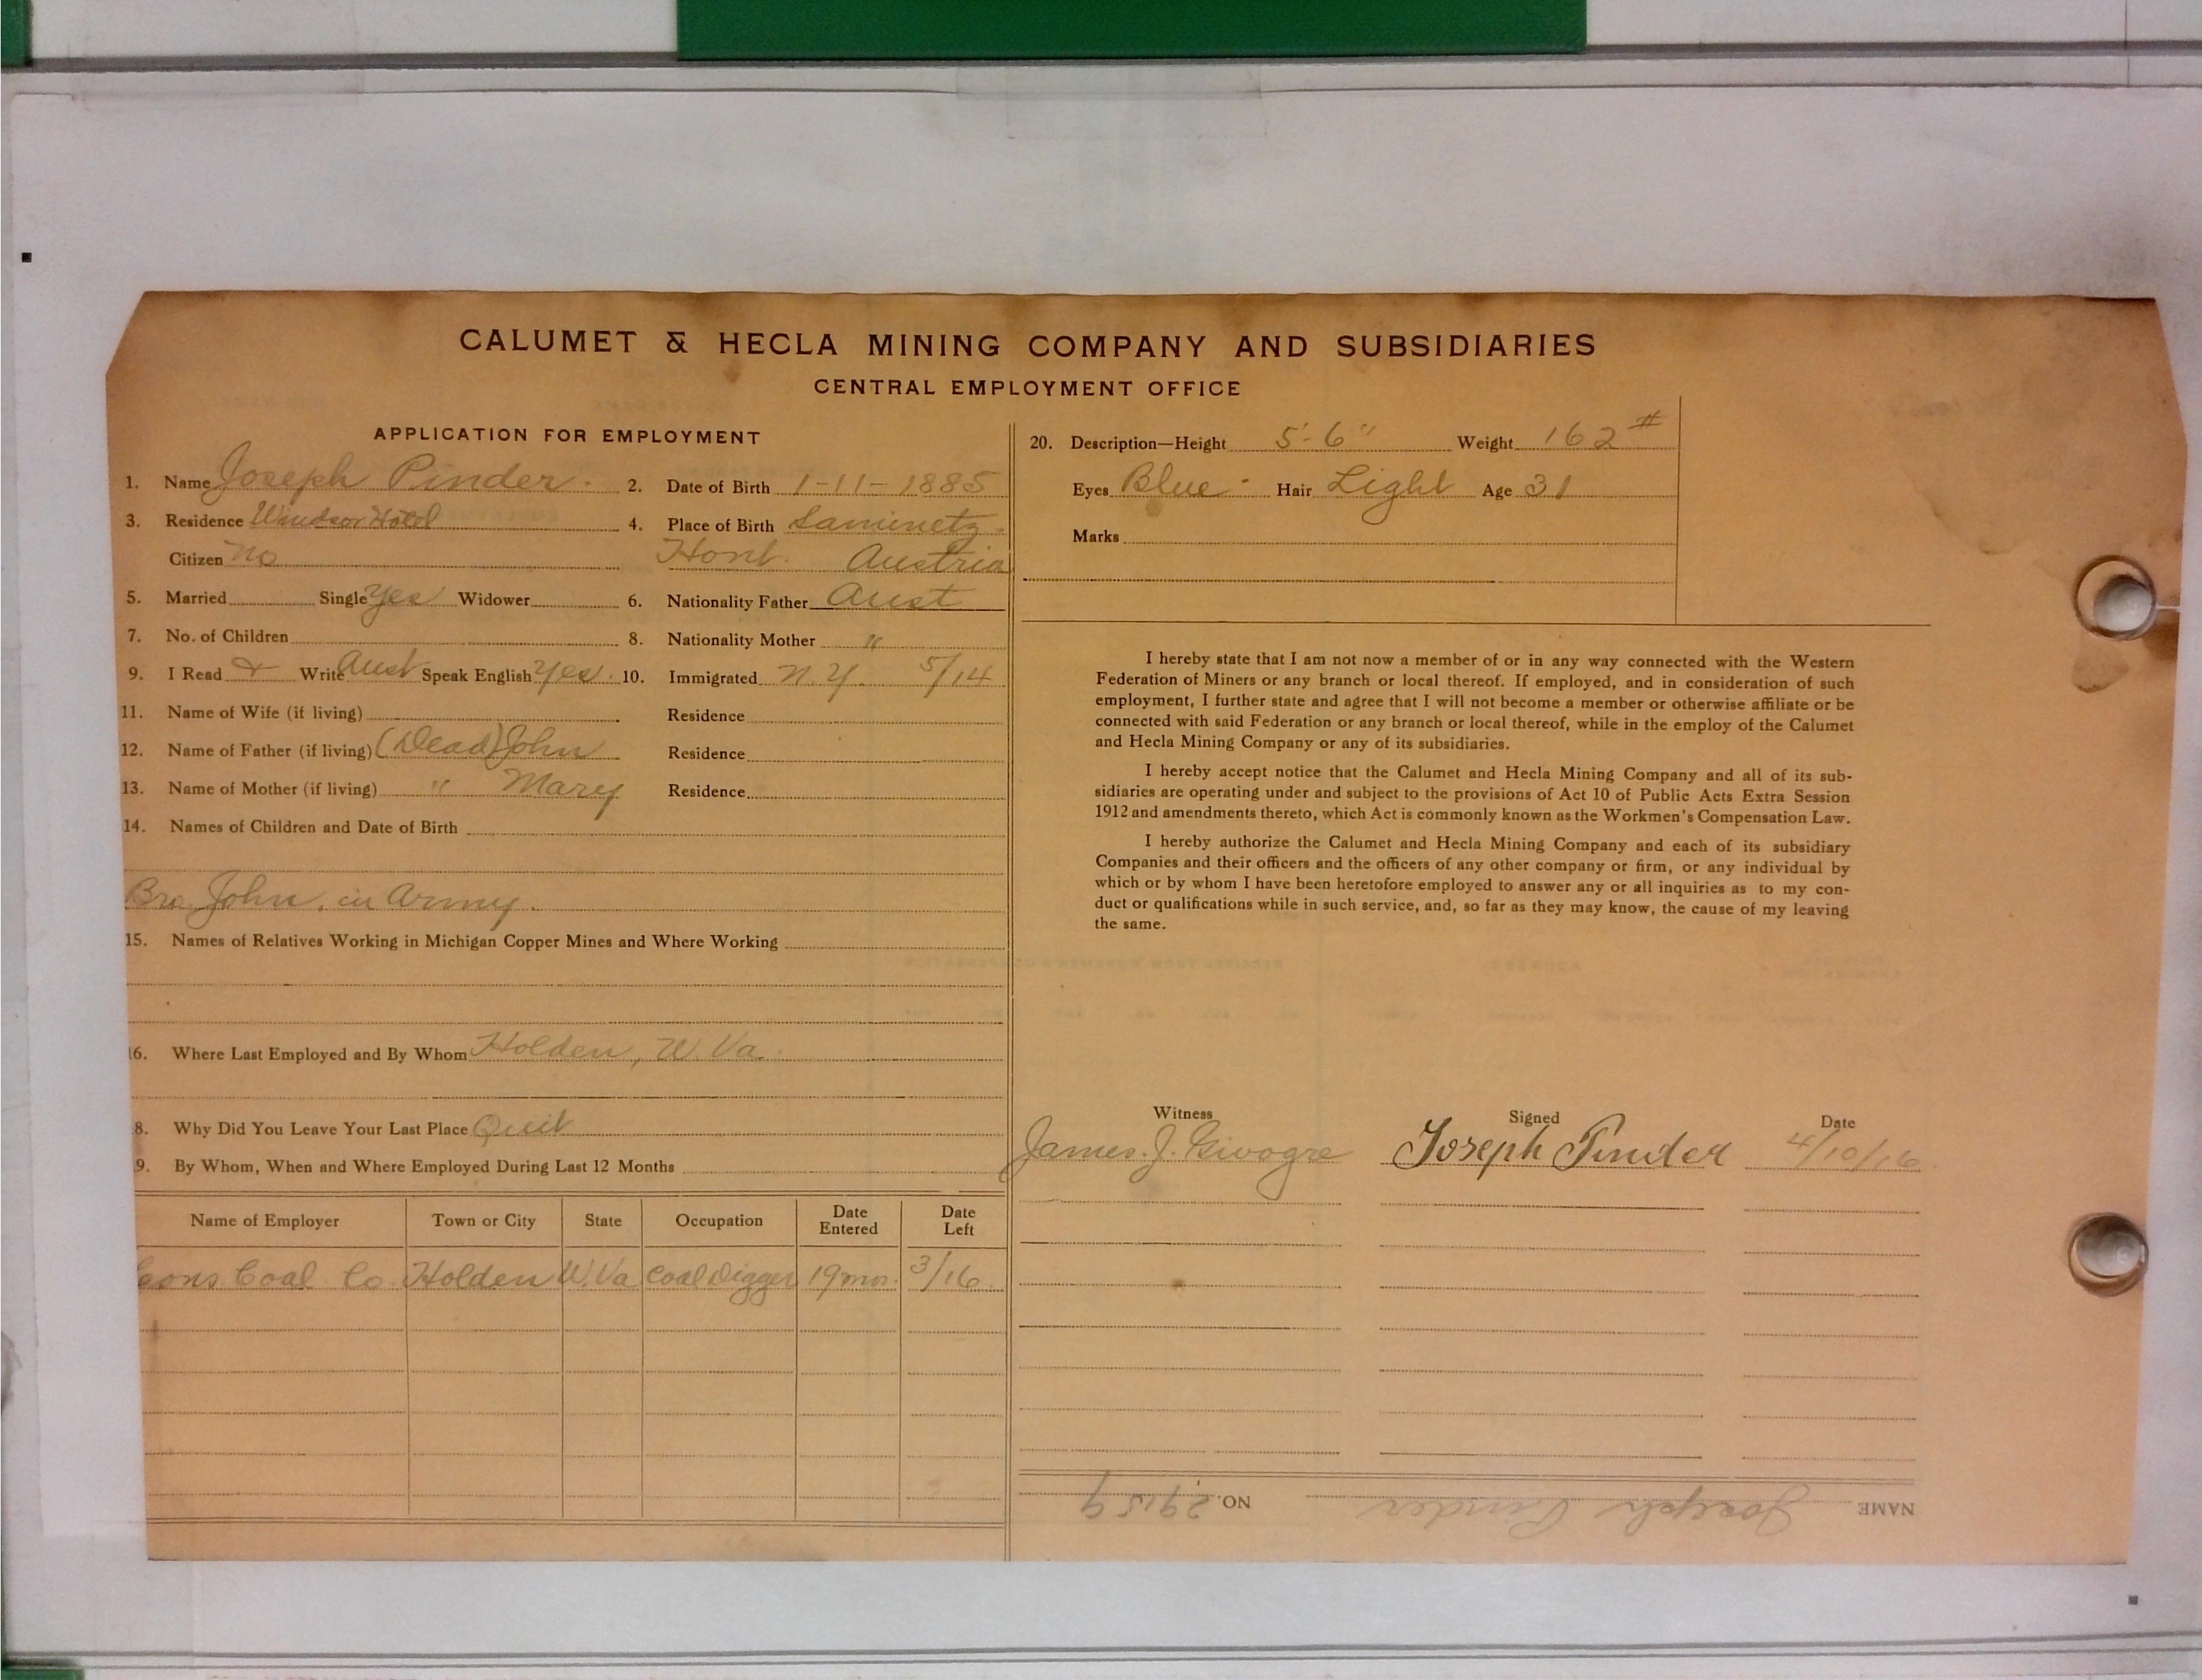 CALUMET & HECLA MINING COMPANY AND SUBSIDIARIES
CENTRAL EMPLOYMENT OFFICE
APPLICATION FOR EMPLOYMENT
1. Name Joseph Pinder. 2. Date of Birth 1-11-1885
3. Residence Windsor Hotel 4. Place of Birth Saminetz-
Citizen no Hont. Austria
5. Married Single yes Widower 6. Nationality Father Aust
7. No. of Children 8. Nationality Mother "
9. I Read & Write Aust Speak English yes. 10. Immigrated N.Y. 5/14
11. Name of Wife (if living) Residence
12. Name of Father (if living) (Dead) John Residence
13. Name of Mother (if living) " Mary Residence
14. Names of Children and Date of Birth
Bro. John, in Army.
15. Names of Relatives Working in Michigan Copper Mines and Where Working
16. Where Last Employed and By Whom Holden, W. Va.
8. Why Did You Leave Your Last Place Quit
9. By Whom, When and Where Employed During Last 12 Months
Name of Employer Town or City State Occupation Date Entered Date Left
Cons Coal Co Holden W.Va Coal Digger 19 mos. 3/16.
20. Description—Height 5'-6" Weight 162#
Eyes Blue Hair Light Age 31
Marks
I hereby state that I am not now a member of or in any way connected with the Western
Federation of Miners or any branch or local thereof. If employed, and in consideration of such
employment, I further state and agree that I will not become a member or otherwise affiliate or be
connected with said Federation or any branch or local thereof, while in the employ of the Calumet
and Hecla Mining Company or any of its subsidiaries.
I hereby accept notice that the Calumet and Hecla Mining Company and all of its sub-
sidiaries are operating under and subject to the provisions of Act 10 of Public Acts Extra Session
1912 and amendments thereto, which Act is commonly known as the Workmen's Compensation Law.
I hereby authorize the Calumet and Hecla Mining Company and each of its subsidiary
Companies and their officers and the officers of any other company or firm, or any individual by
which or by whom I have been heretofore employed to answer any or all inquiries as to my con-
duct or qualifications while in such service, and, so far as they may know, the cause of my leaving
the same.
Witness Signed Date
James. J. Givogre Joseph Pinder 4/10/16
NAME Joseph Pinder NO. 29159